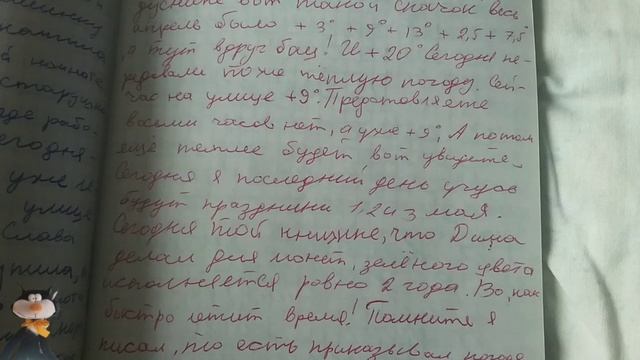 душие вот такой скачок весь
апрель было +3° +9° +13° +2,5 +7,5°
, а тут вдруг бац! И +20° Сегодня пе-
редавали тоже тёплую погоду. Сей-
час на улице +9°. Представляете
восьми часов нет, а уже +9°, А потом
ещё теплее будет вот увидите.
Сегодня я последний день учусь
будут праздники 1, 2 и 3 мая.
Сегодня той книжке, что Дима
делал для монет, зелёного цвета
исполняется ровно 2 года. Во, как
быстро летит время! Помните я
писал, что есть приказывал погоде
старушка
где рабо-
егодня-
уже не
улице
Слава